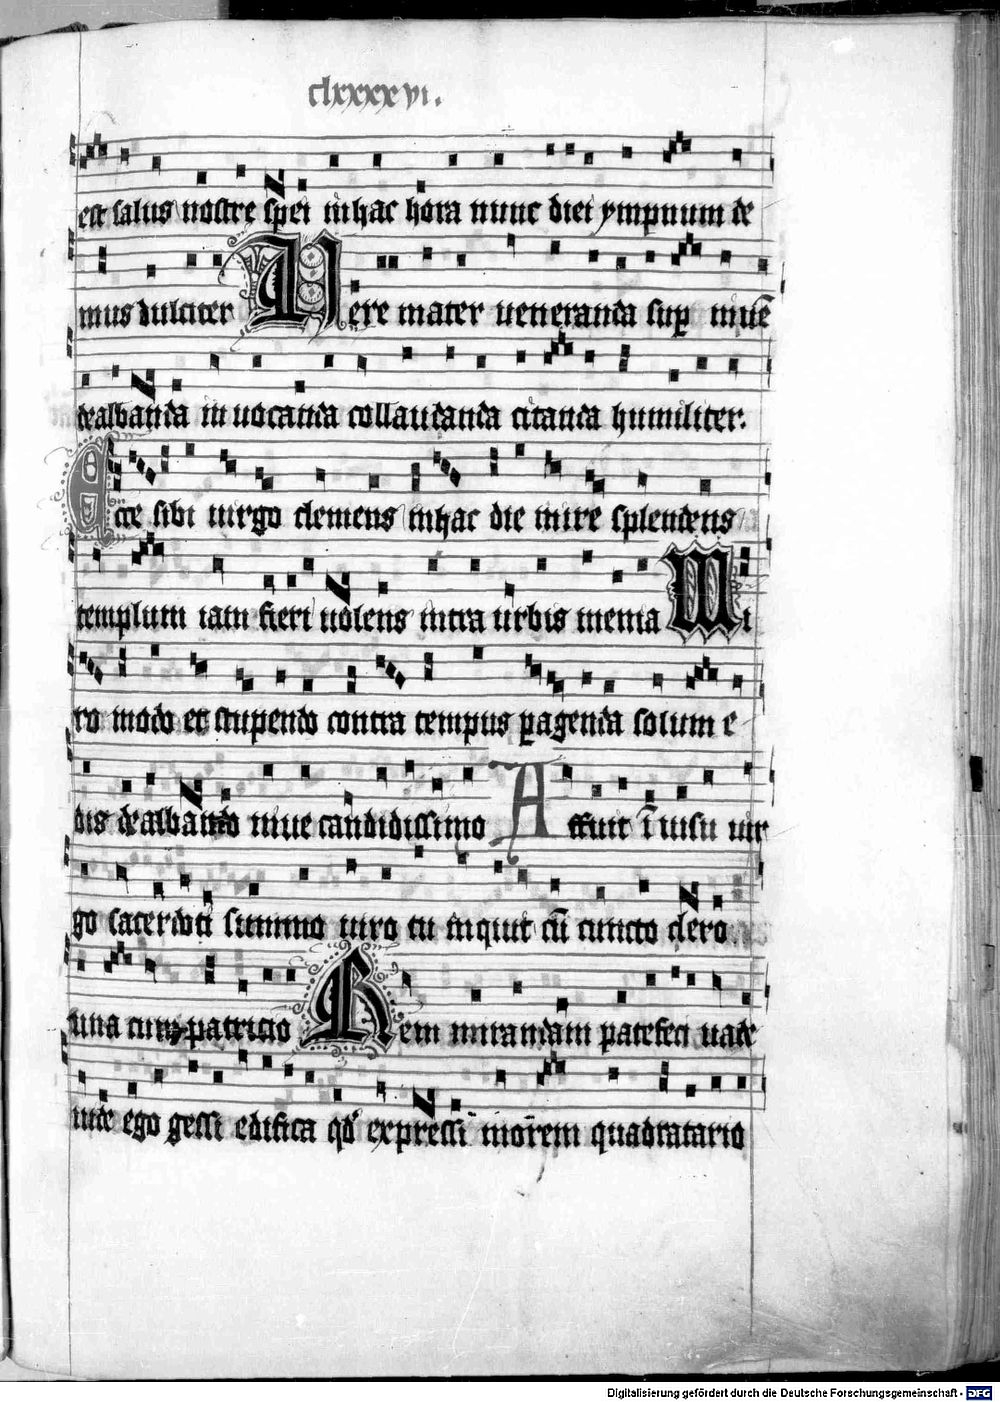 clxxxxvi.
est salus nostre spei in hac hora nunc diei ympnum de
mus dulciter Vere mater veneranda sup niue
dealbanda in uocanda collaudanda citanda humiliter.
Ecce sibi uirgo clemens in hac die mire splendens
templum iam fieri uolens intra urbis menia Mi
ro modo et stupendo contra tempus pagenda solum e
dis dealbando niue candidissimo Affuit ī uisu uir
go sacerdoti summo uiro cu inquit cū cuncto clero
una cum patricio Rem mirandam patefeci uade
inde ego gessi edifica qd expressi morem quadratario
Digitalisierung gefördert durch die Deutsche Forschungsgemeinschaft - DFG